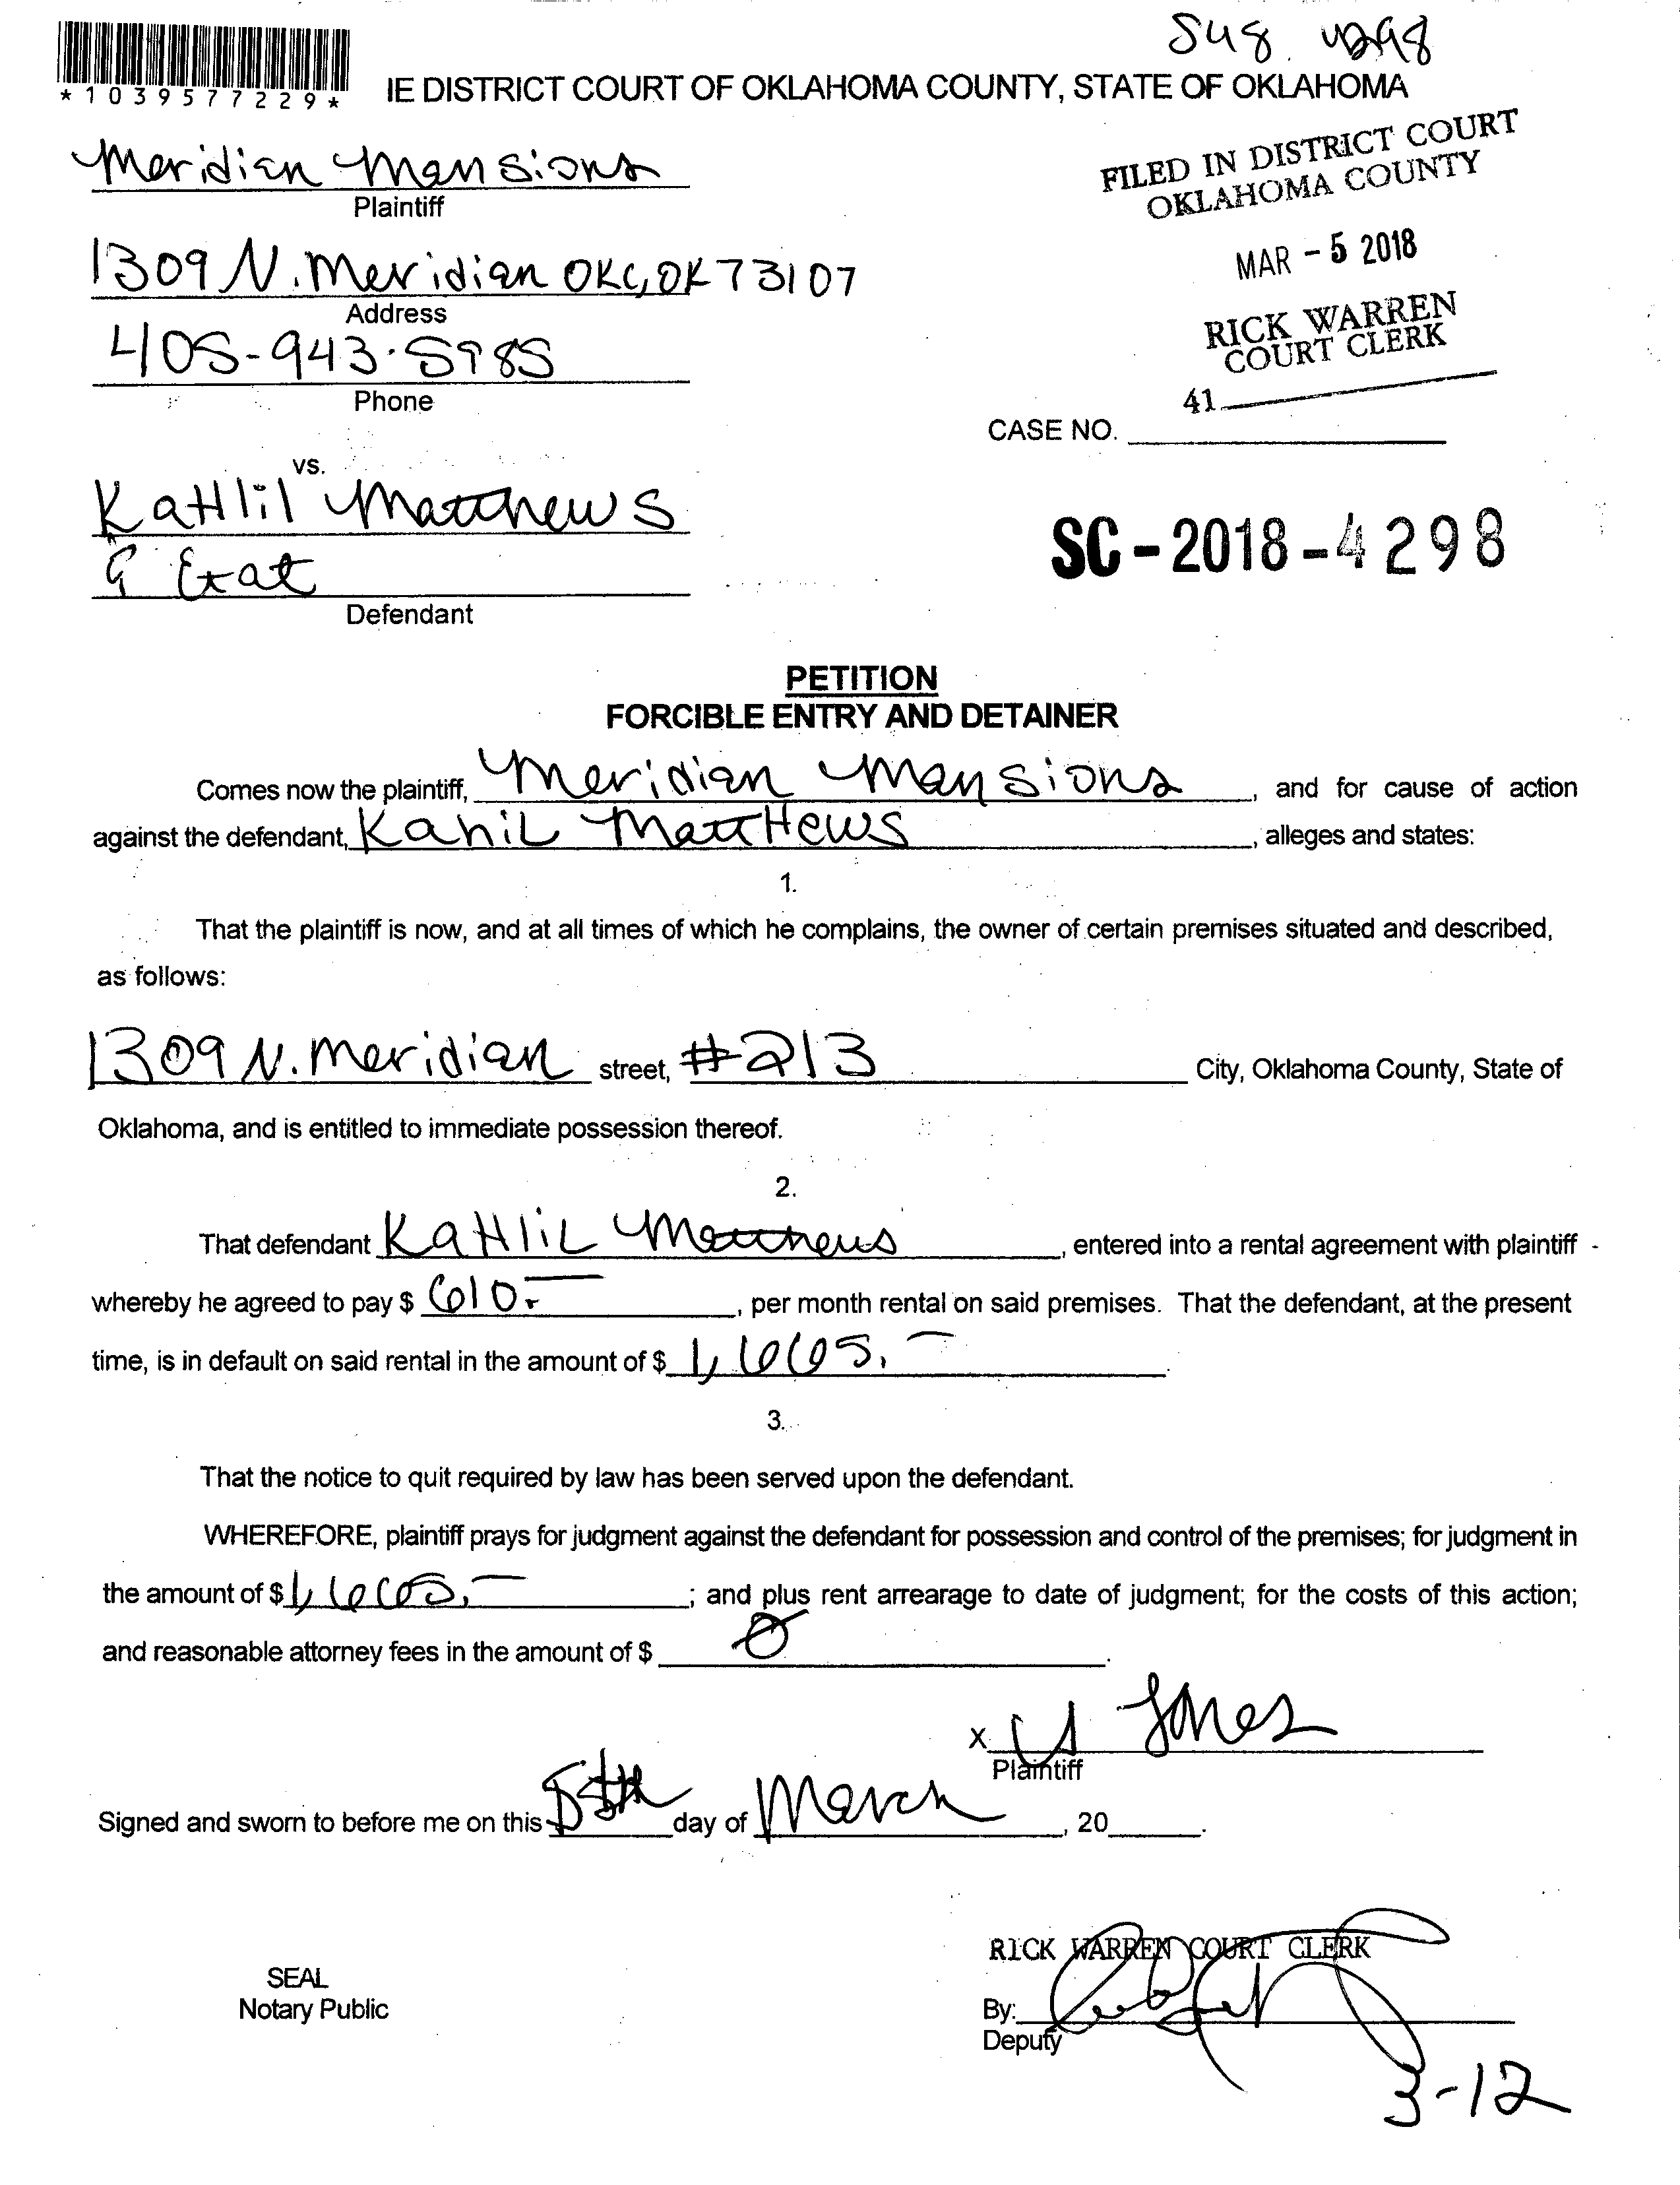 *1039577229*
IE DISTRICT COURT OF OKLAHOMA COUNTY, STATE OF OKLAHOMA
Meridian Mansions
Plaintiff
FILED IN DISTRICT COURT
OKLAHOMA COUNTY
1309 N. Meridian OKC, OK 73107
Address
MAR - 5 2018
405-943-5985
Phone
RICK WARREN
COURT CLERK
41
CASE NO.
vs.
KaHlil Matthews
Defendant
SC-2018-4298
PETITION
FORCIBLE ENTRY AND DETAINER
Comes now the plaintiff, Meridian Mansions, and for cause of action
against the defendant, Kahil MattHews, alleges and states:
1.
That the plaintiff is now, and at all times of which he complains, the owner of certain premises situated and described,
as follows:
1309 N. Meridian street, #213 City, Oklahoma County, State of
Oklahoma, and is entitled to immediate possession thereof.
2.
That defendant KaHliL Matthews, entered into a rental agreement with plaintiff
whereby he agreed to pay $ 610.-, per month rental on said premises. That the defendant, at the present
time, is in default on said rental in the amount of $ 1,665.-.
3.
That the notice to quit required by law has been served upon the defendant.
WHEREFORE, plaintiff prays for judgment against the defendant for possession and control of the premises; for judgment in
the amount of $ 1,665.-; and plus rent arrearage to date of judgment; for the costs of this action;
and reasonable attorney fees in the amount of $ 0.
X Jones
Plaintiff
Signed and sworn to before me on this 5th day of March, 20
RICK WARREN COURT CLERK
SEAL
Notary Public
By:
Deputy
3-12